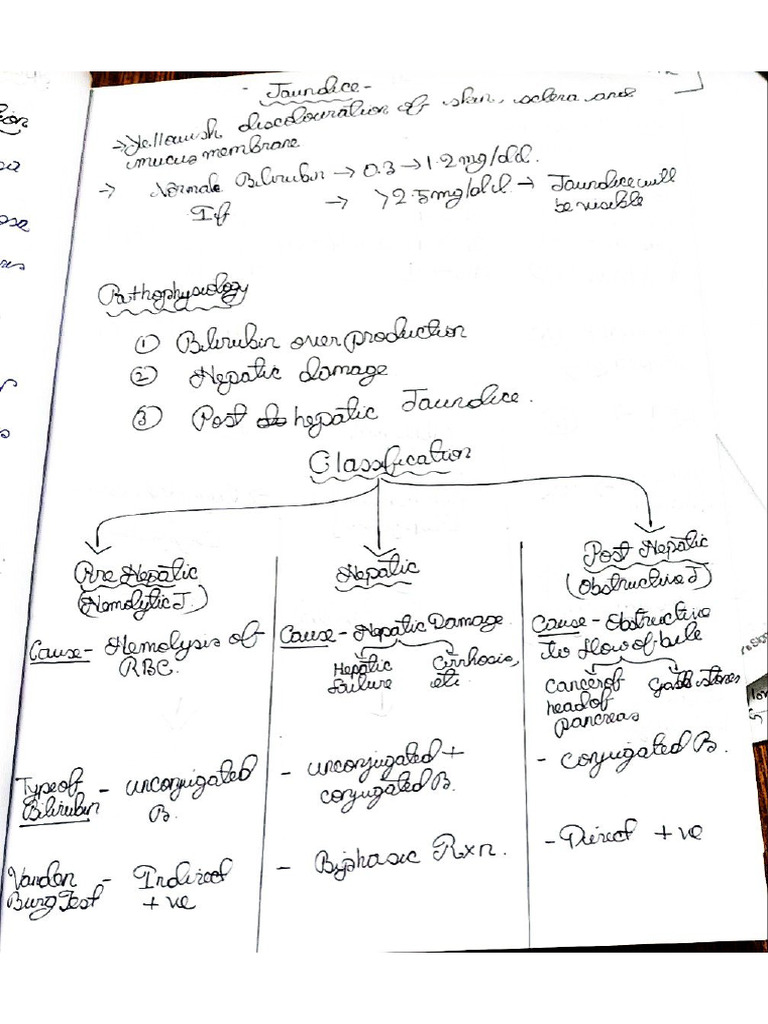 - Jaundice -
→ Yellowish discolouration of skin, sclera and
mucus membrane
→ Normal Bilirubin → 0.3 → 1.2 mg/dl.
If → >2.5 mg/dl → Jaundice will
be visible
Pathophysiology
① Bilirubin over production
② Hepatic damage
③ Post hepatic Jaundice.
Classification
Pre Hepatic
(Hemolytic J.)
Cause - Hemolysis of
RBC.
Type of
Bilirubin - unconjugated
B.
Vandan
Burg Test - Indirect
+ve
Hepatic
Cause - Hepatic Damage
Hepatic
failure
Cirrhosis,
etc
- unconjugated +
conjugated B.
- Biphasic Rxn.
Post Hepatic
(Obstructive J)
Cause - Obstructive
to flow of bile
Cancer of
head of
pancreas
Gall stones
- Conjugated B.
- Direct +ve